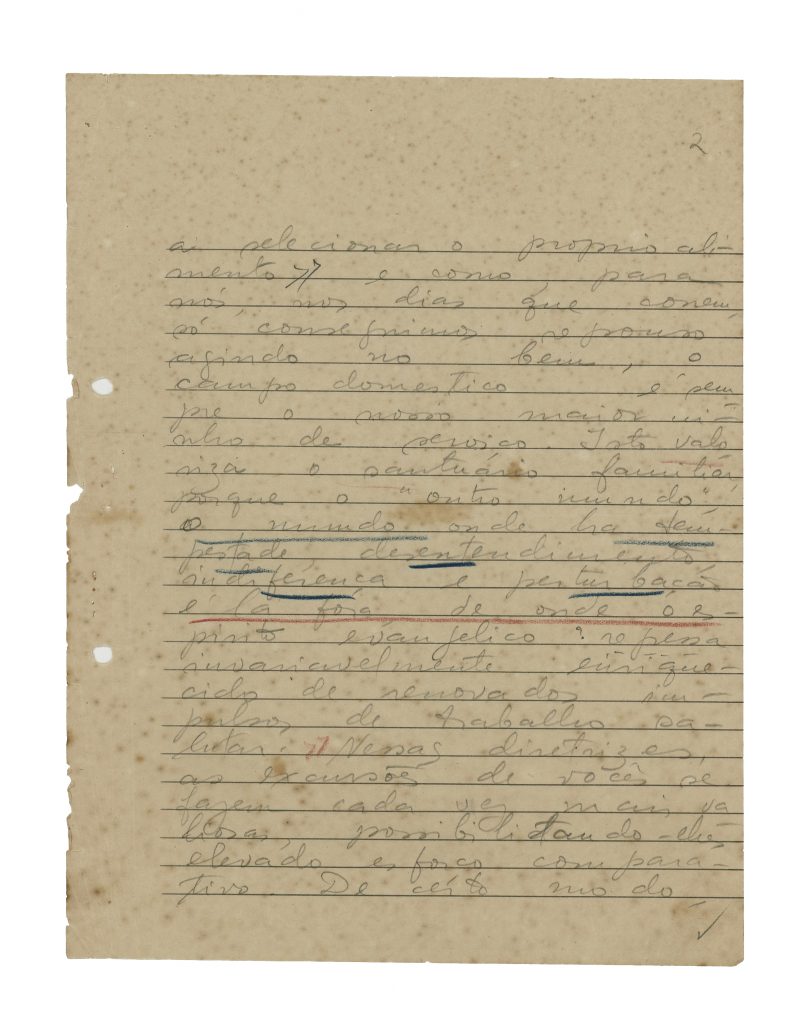 2
a selecionar o proprio ali-
mento » e como, para
nós, nos dias que correm,
só conseguimos repouso
agindo no bem, o
campo domestico é sem
pre o nosso maior
nho de serviço. Isto valo
riza o santuário familiar,
porque o "outro mundo",
o mundo onde ha tem-
pestade desentendimento,
indiferença e perturbação
é lá fóra de onde o es-
pirito evangelico regressa
invariavelmente enrique-
cido de renovados im-
pulsos de trabalho sa-
lutar. » Nessas diretrizes,
as excursões de vocês se
fazem cada vez mais va
liosas, possibilitando-lhe
elevado esforço compara-
tivo. De certo modo,